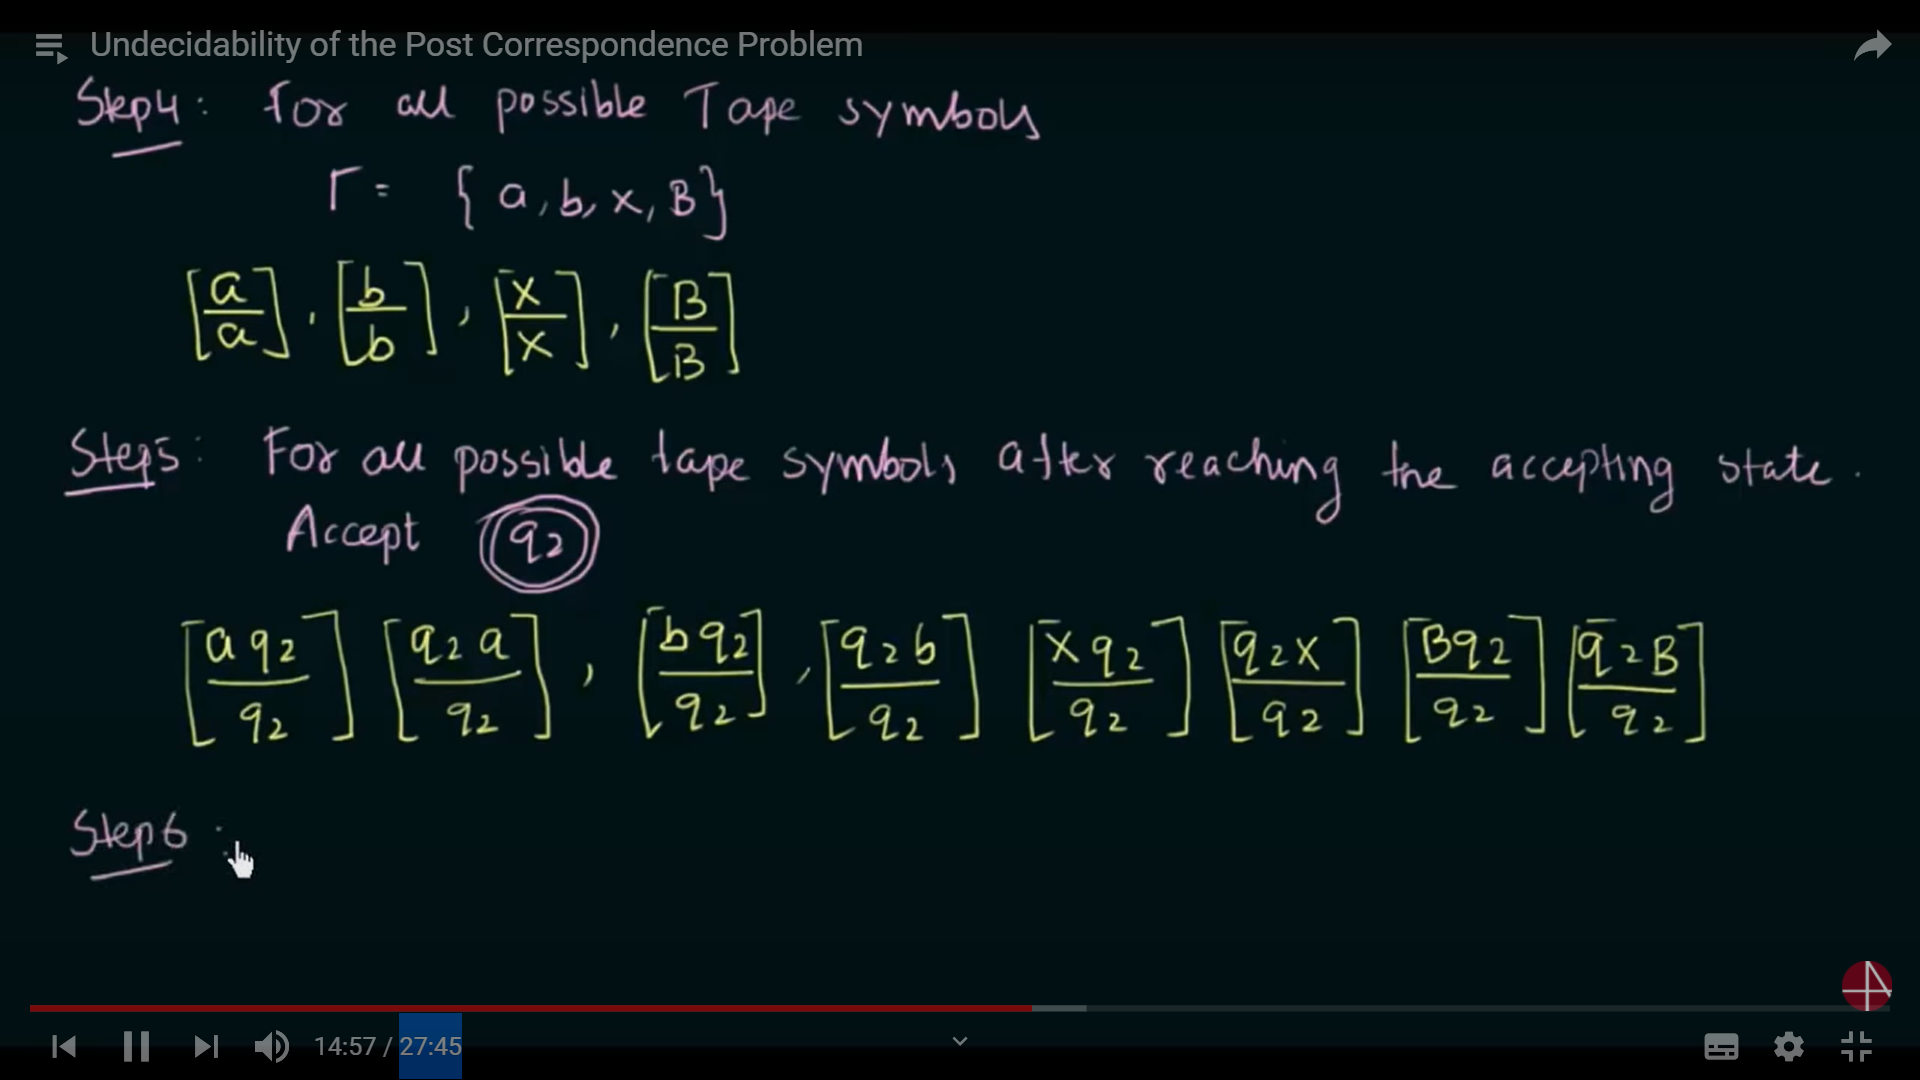 Undecidability of the Post Correspondence Problem
Step4: For all possible Tape symbols
Γ = { a, b, x, B}
[a/a], [b/b], [x/x], [B/B]
Step5: For all possible tape symbols after reaching the accepting state.
Accept q2
[aq2/q2] [q2a/q2], [bq2/q2], [q2b/q2] [xq2/q2] [q2x/q2] [Bq2/q2] [q2B/q2]
Step6 :
14:57 / 27:45